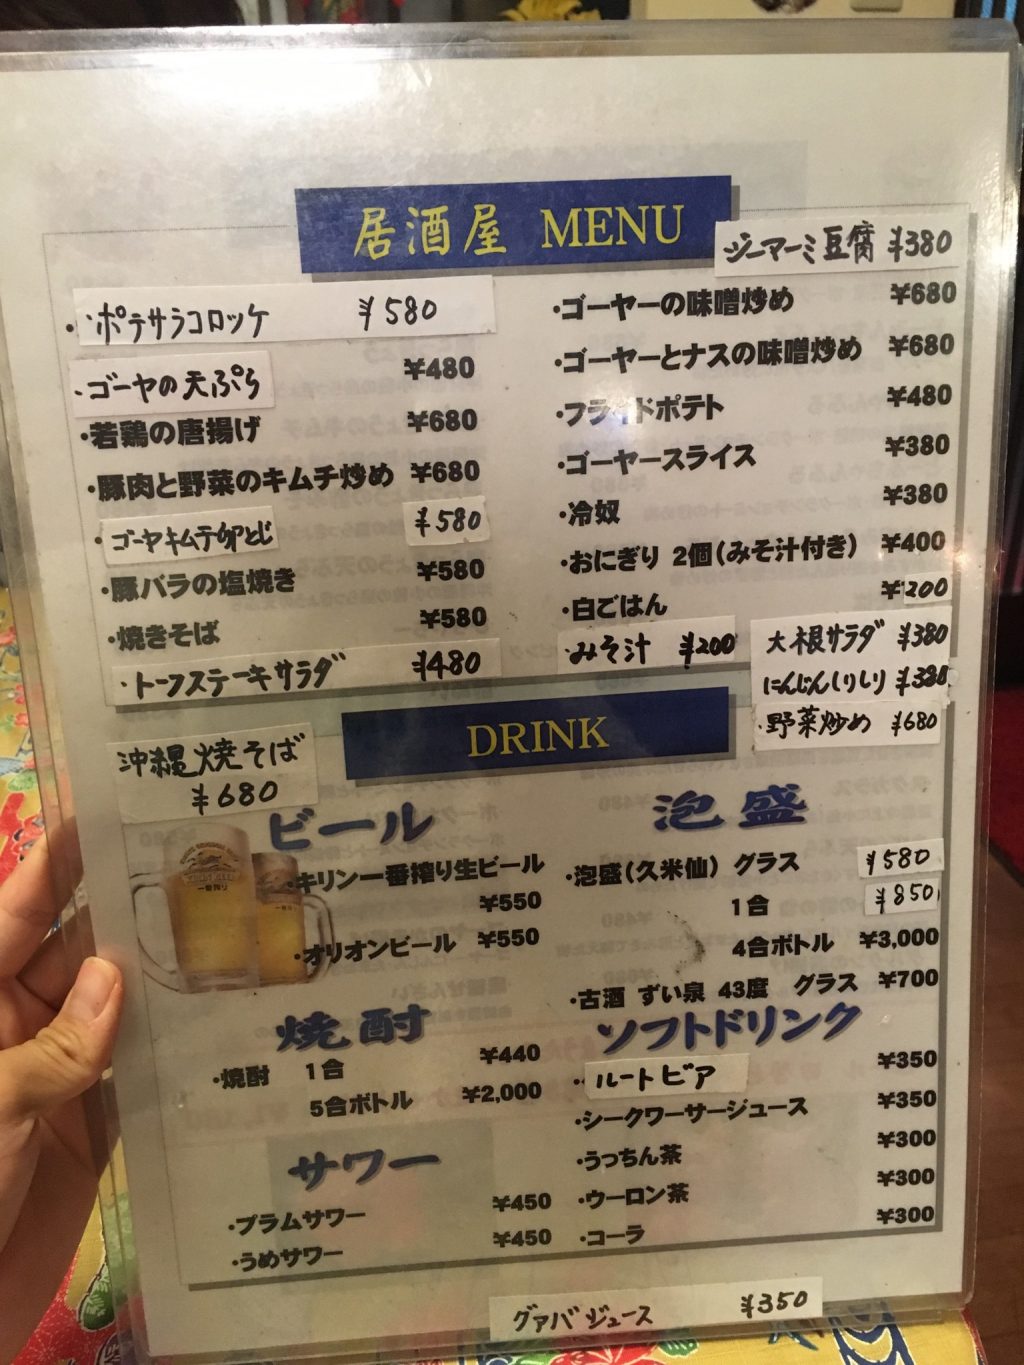 居酒屋 MENU
ジーマーミ豆腐 ¥380
・ポテサラコロッケ ¥580
・ゴーヤの天ぷら ¥480
・若鶏の唐揚げ ¥680
・豚肉と野菜のキムチ炒め ¥680
・ゴーヤキムチ卵とじ ¥580
・豚バラの塩焼き ¥580
・焼きそば ¥580
・トーフステーキサラダ ¥480
・ゴーヤーの味噌炒め ¥680
・ゴーヤーとナスの味噌炒め ¥680
・フライドポテト ¥480
・ゴーヤースライス ¥380
・冷奴 ¥380
・おにぎり 2個(みそ汁付き) ¥400
・白ごはん ¥200
・みそ汁 ¥200
大根サラダ ¥380
にんじんしりしり ¥380
野菜炒め ¥680
沖縄焼そば
¥680
DRINK
ビール
・キリン一番搾り生ビール
¥550
・オリオンビール ¥550
焼酎
・焼酎 1合 ¥440
5合ボトル ¥2,000
サワー
・プラムサワー ¥450
・うめサワー ¥450
泡盛
・泡盛(久米仙) グラス ¥580
1合 ¥850
4合ボトル ¥3,000
・古酒 ずい泉 43度 グラス ¥700
ソフトドリンク
・ルートビア ¥350
・シークワーサージュース ¥350
・うっちん茶 ¥300
・ウーロン茶 ¥300
・コーラ ¥300
グァバジュース ¥350
一番搾り